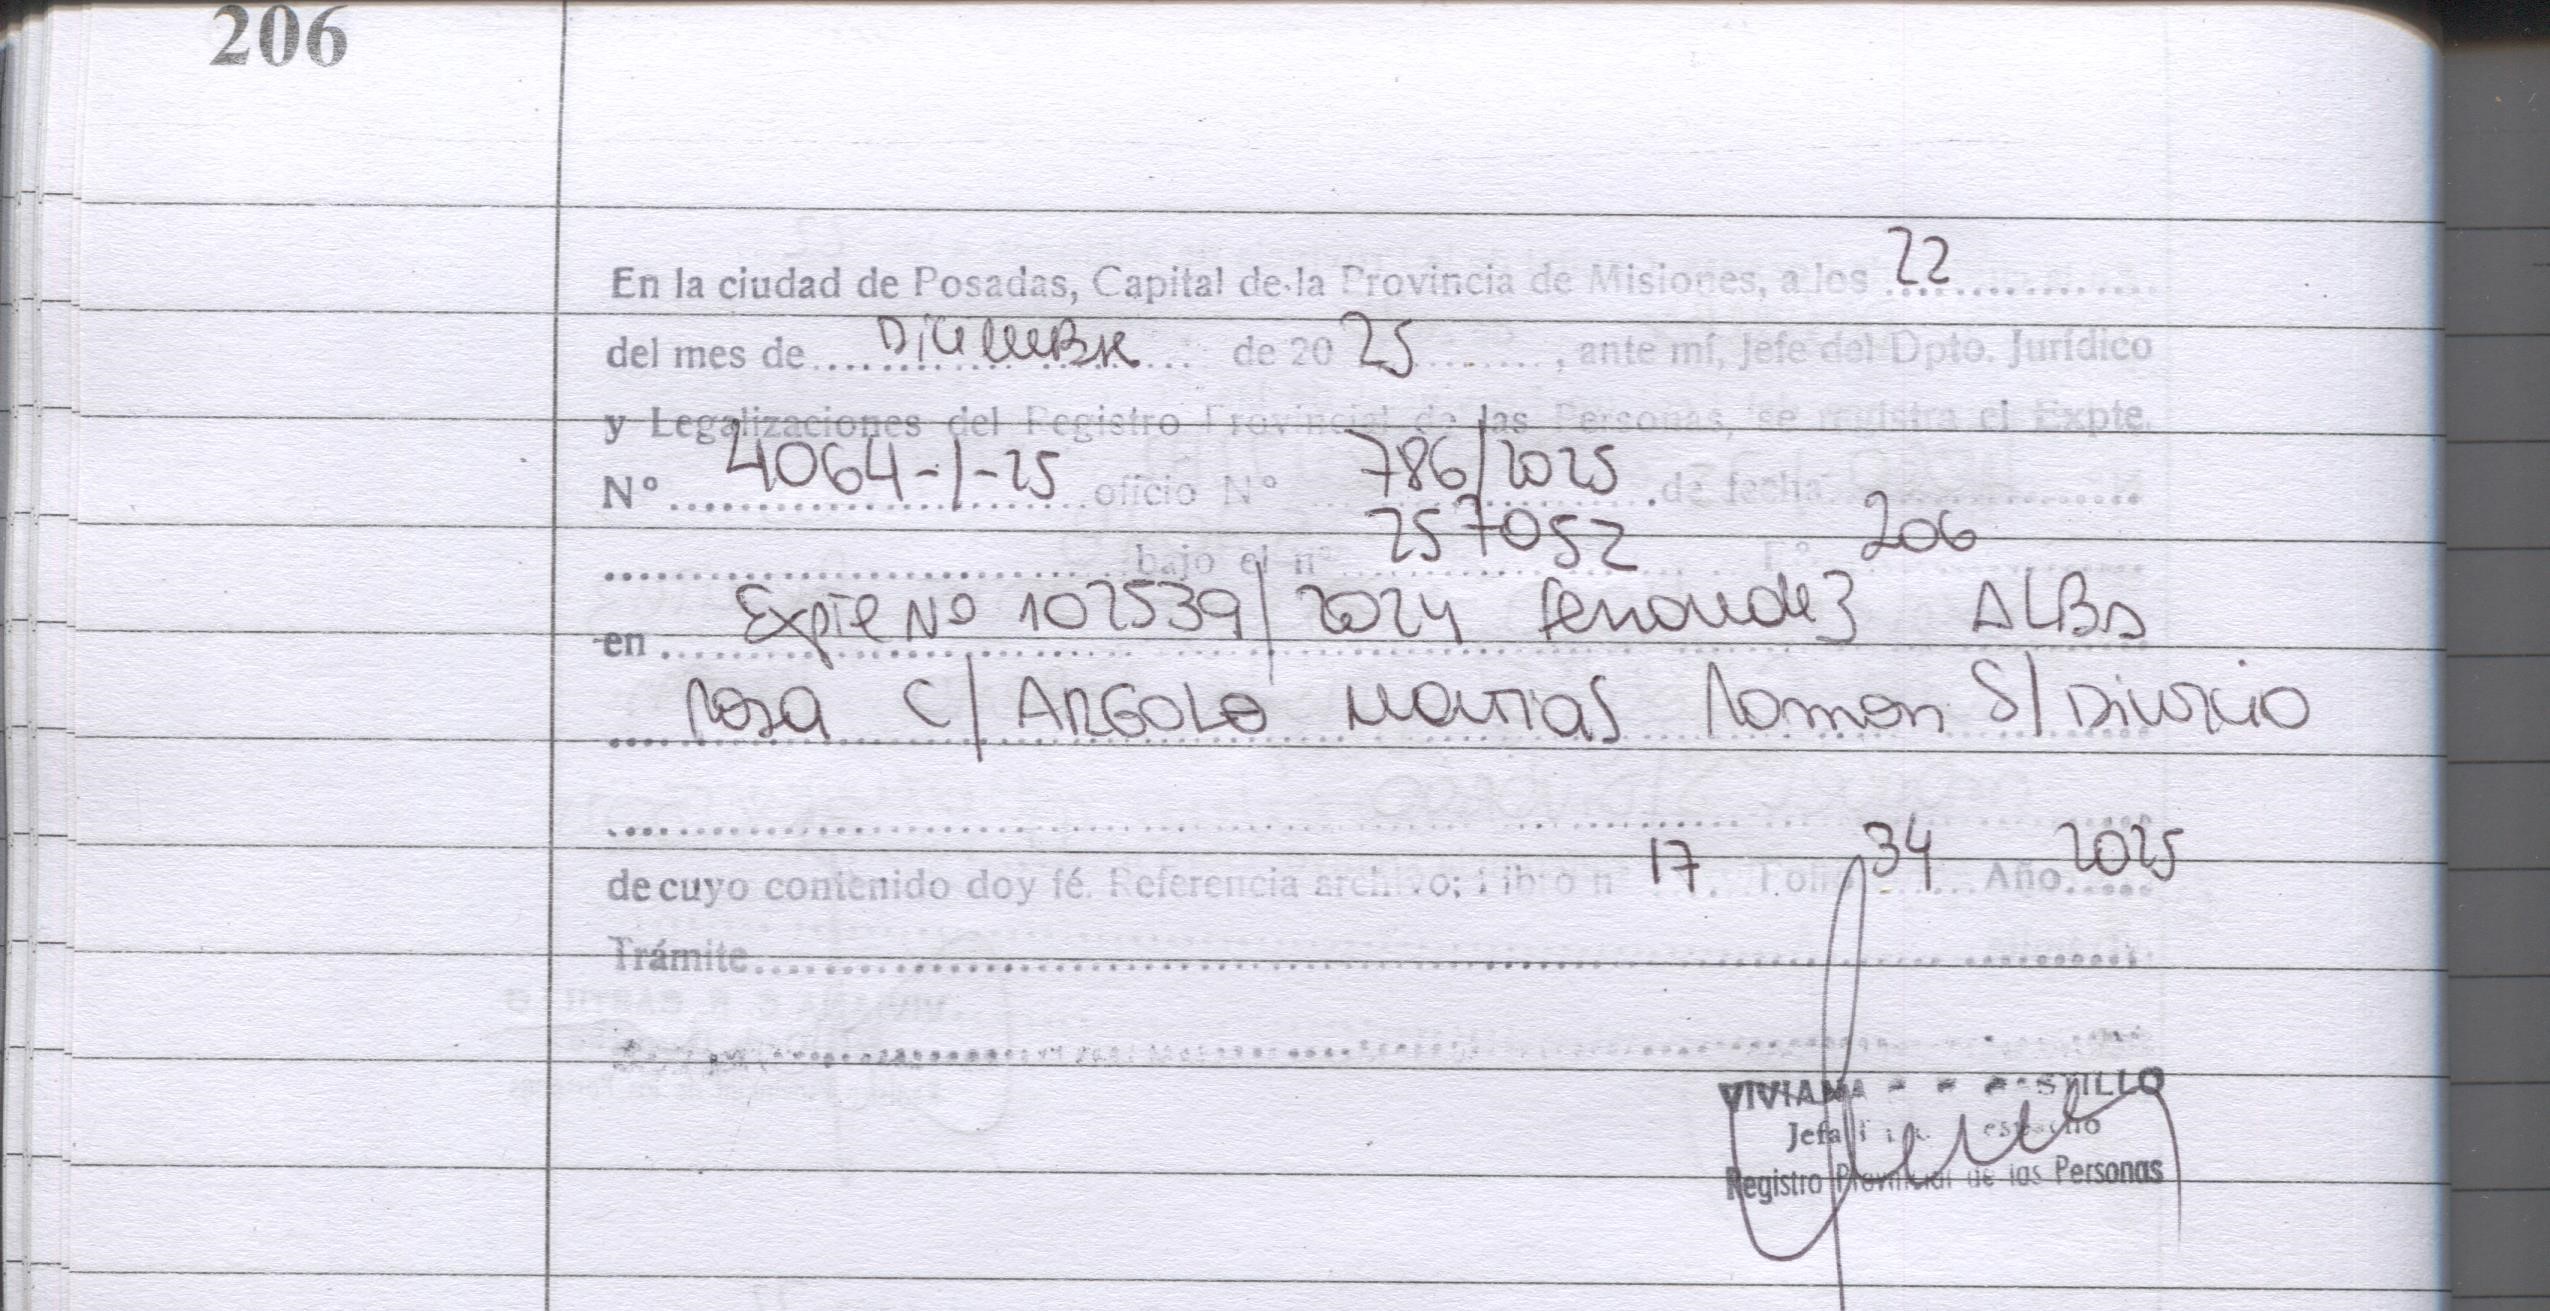 206
En la ciudad de Posadas, Capital de la Provincia de Misiones, a los 22
del mes de Diciembre de 20 25, ante mí, Jefe del Dpto. Jurídico
y Legalizaciones del Registro Provincial de las Personas, se registra el Expte.
N° 4064-1-25 oficio N° 786/2025 de fecha
bajo el n° 257052 F° 206
en Expte Nº 102539/2024 Fernandez ALBA
Rosa C/ ARGOLO Matias Ramon S/ Divorcio
de cuyo contenido doy fé. Referencia archivo: Libro n° 17 Folio 34 Año 2025
Trámite
VIVIANA STILLO
Jefa
Registro Provincial de las Personas